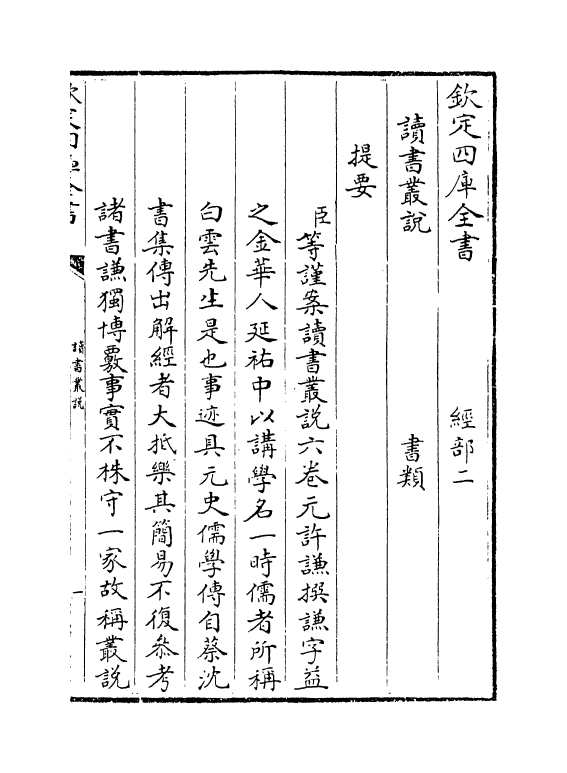 欽定四庫全書 經部二
讀書叢說 書類
提要
臣等謹案讀書叢說六卷元許謙撰謙字益
之金華人延祐中以講學名一時儒者所稱
白雲先生是也事迹具元史儒學傳自蔡沈
書集傳出解經者大抵樂其簡易不復叅考
諸書謙獨博覈事實不株守一家故稱叢說
欽定四庫全書
讀書叢說
一